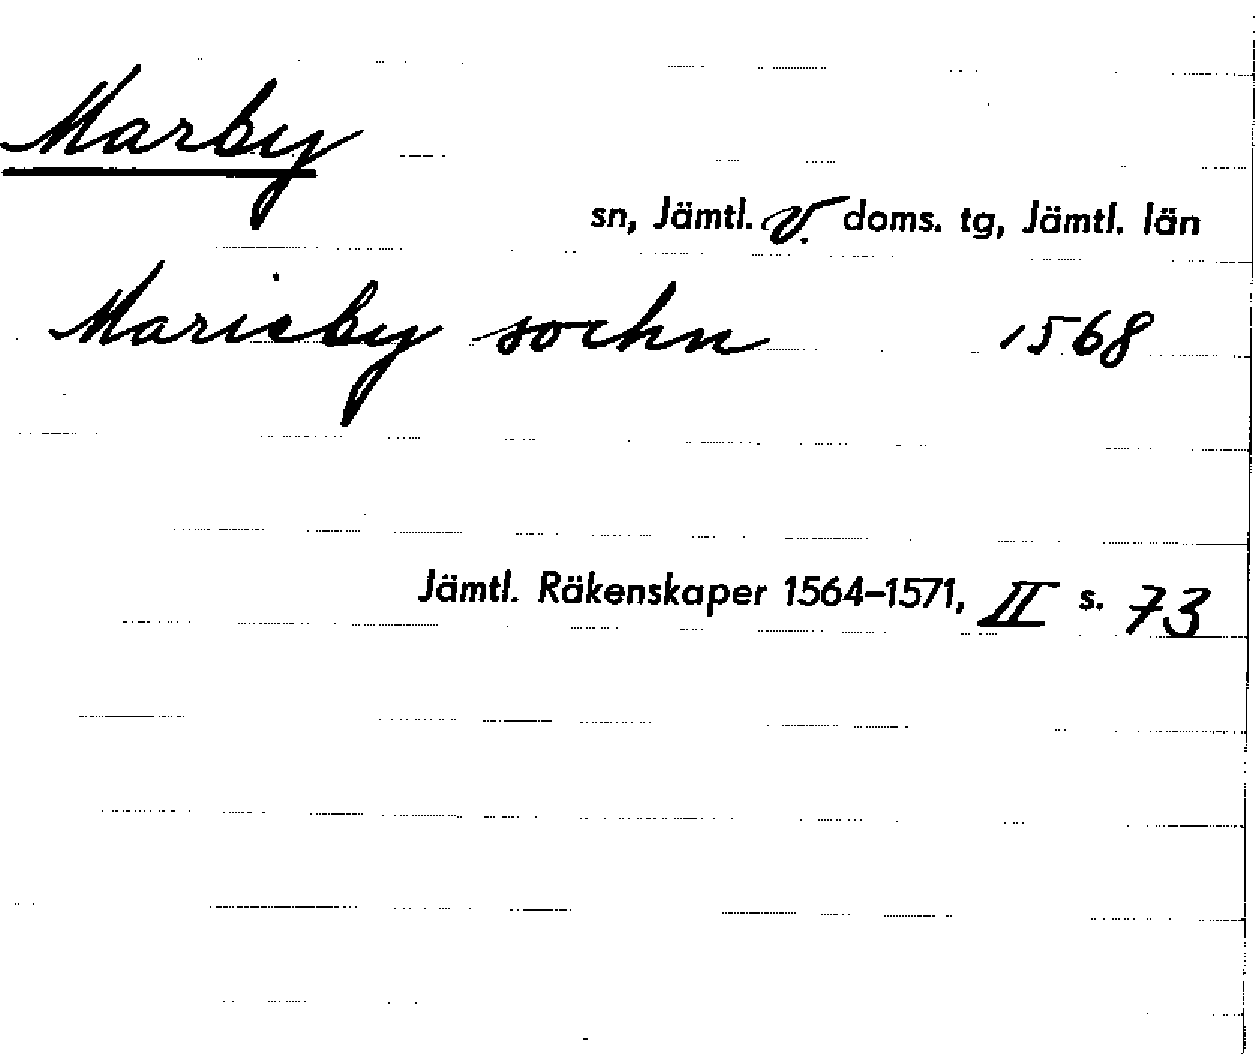 Marby
sn, Jämtl. V. doms. tg, Jämtl. län
Marieby sochn 1568
Jämtl. Räkenskaper 1564–1571, II s. 73